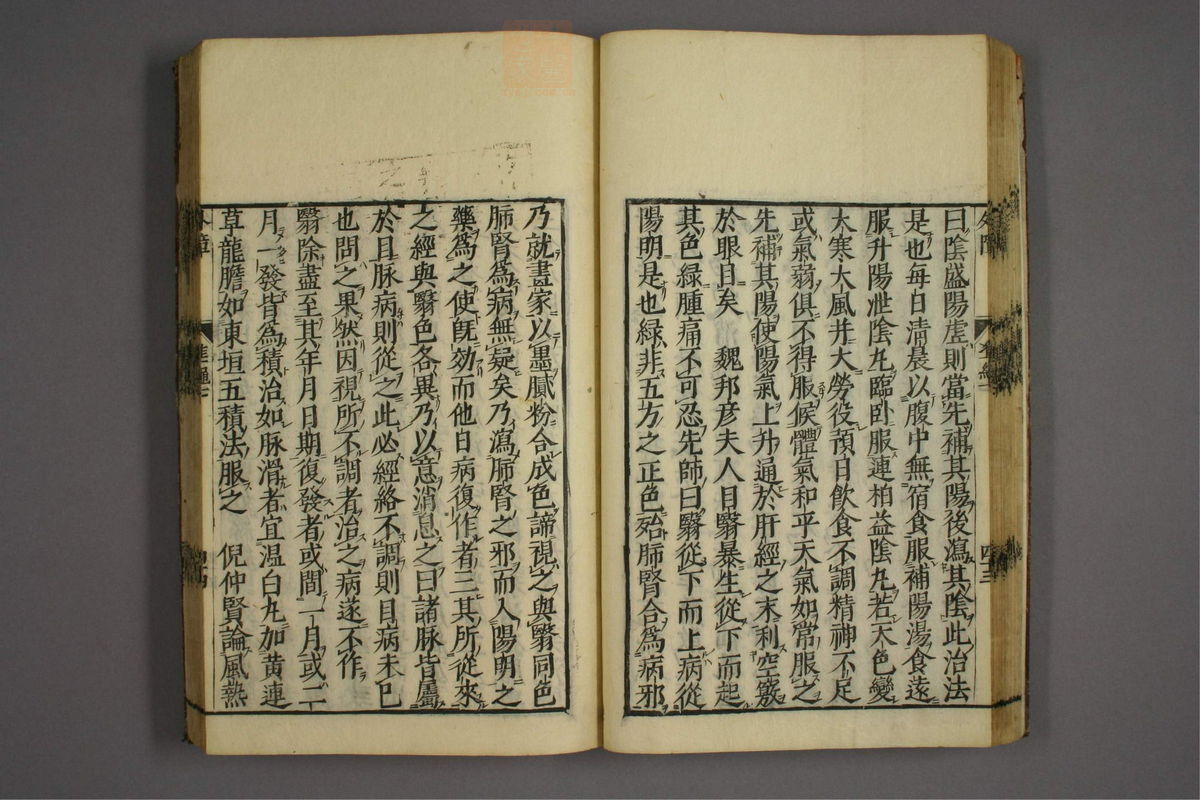 曰陰盛陽虛則當先補其陽後瀉其陰此治法
是也每日淸晨以腹中無宿食服補陽湯食遠
服升陽泄陰丸臨卧服連柏益陰丸若天色變
大寒大風并大勞役預日飮食不調精神不足
或氣弱俱不得服候體氣和乎天氣如常服之
先補其陽使陽氣上升通於肝經之末利空竅
於眼目矣　魏邦彦夫人目翳暴生從下而起
其色緑腫痛不可忍先師曰翳從下而上病從
陽明是也緑非五方之正色殆肺腎合爲病邪
乃就畫家以墨膩粉合成色諦視之與翳同色
肺腎爲病無疑矣乃瀉肺腎之邪而入陽明之
藥爲之使旣効而他日病復作者三其所從來
之經與翳色各異乃以意消息之曰諸脉皆屬
於目脉病則從之此必經絡不調則目病未已
也問之果然因視所不調者治之病遂不作
翳除盡至其年月日期復發者或間一月或二
月一發皆爲積治如脉滑者宜温白丸加黄連
草龍膽如東垣五積法服之　倪仲賢論風熱